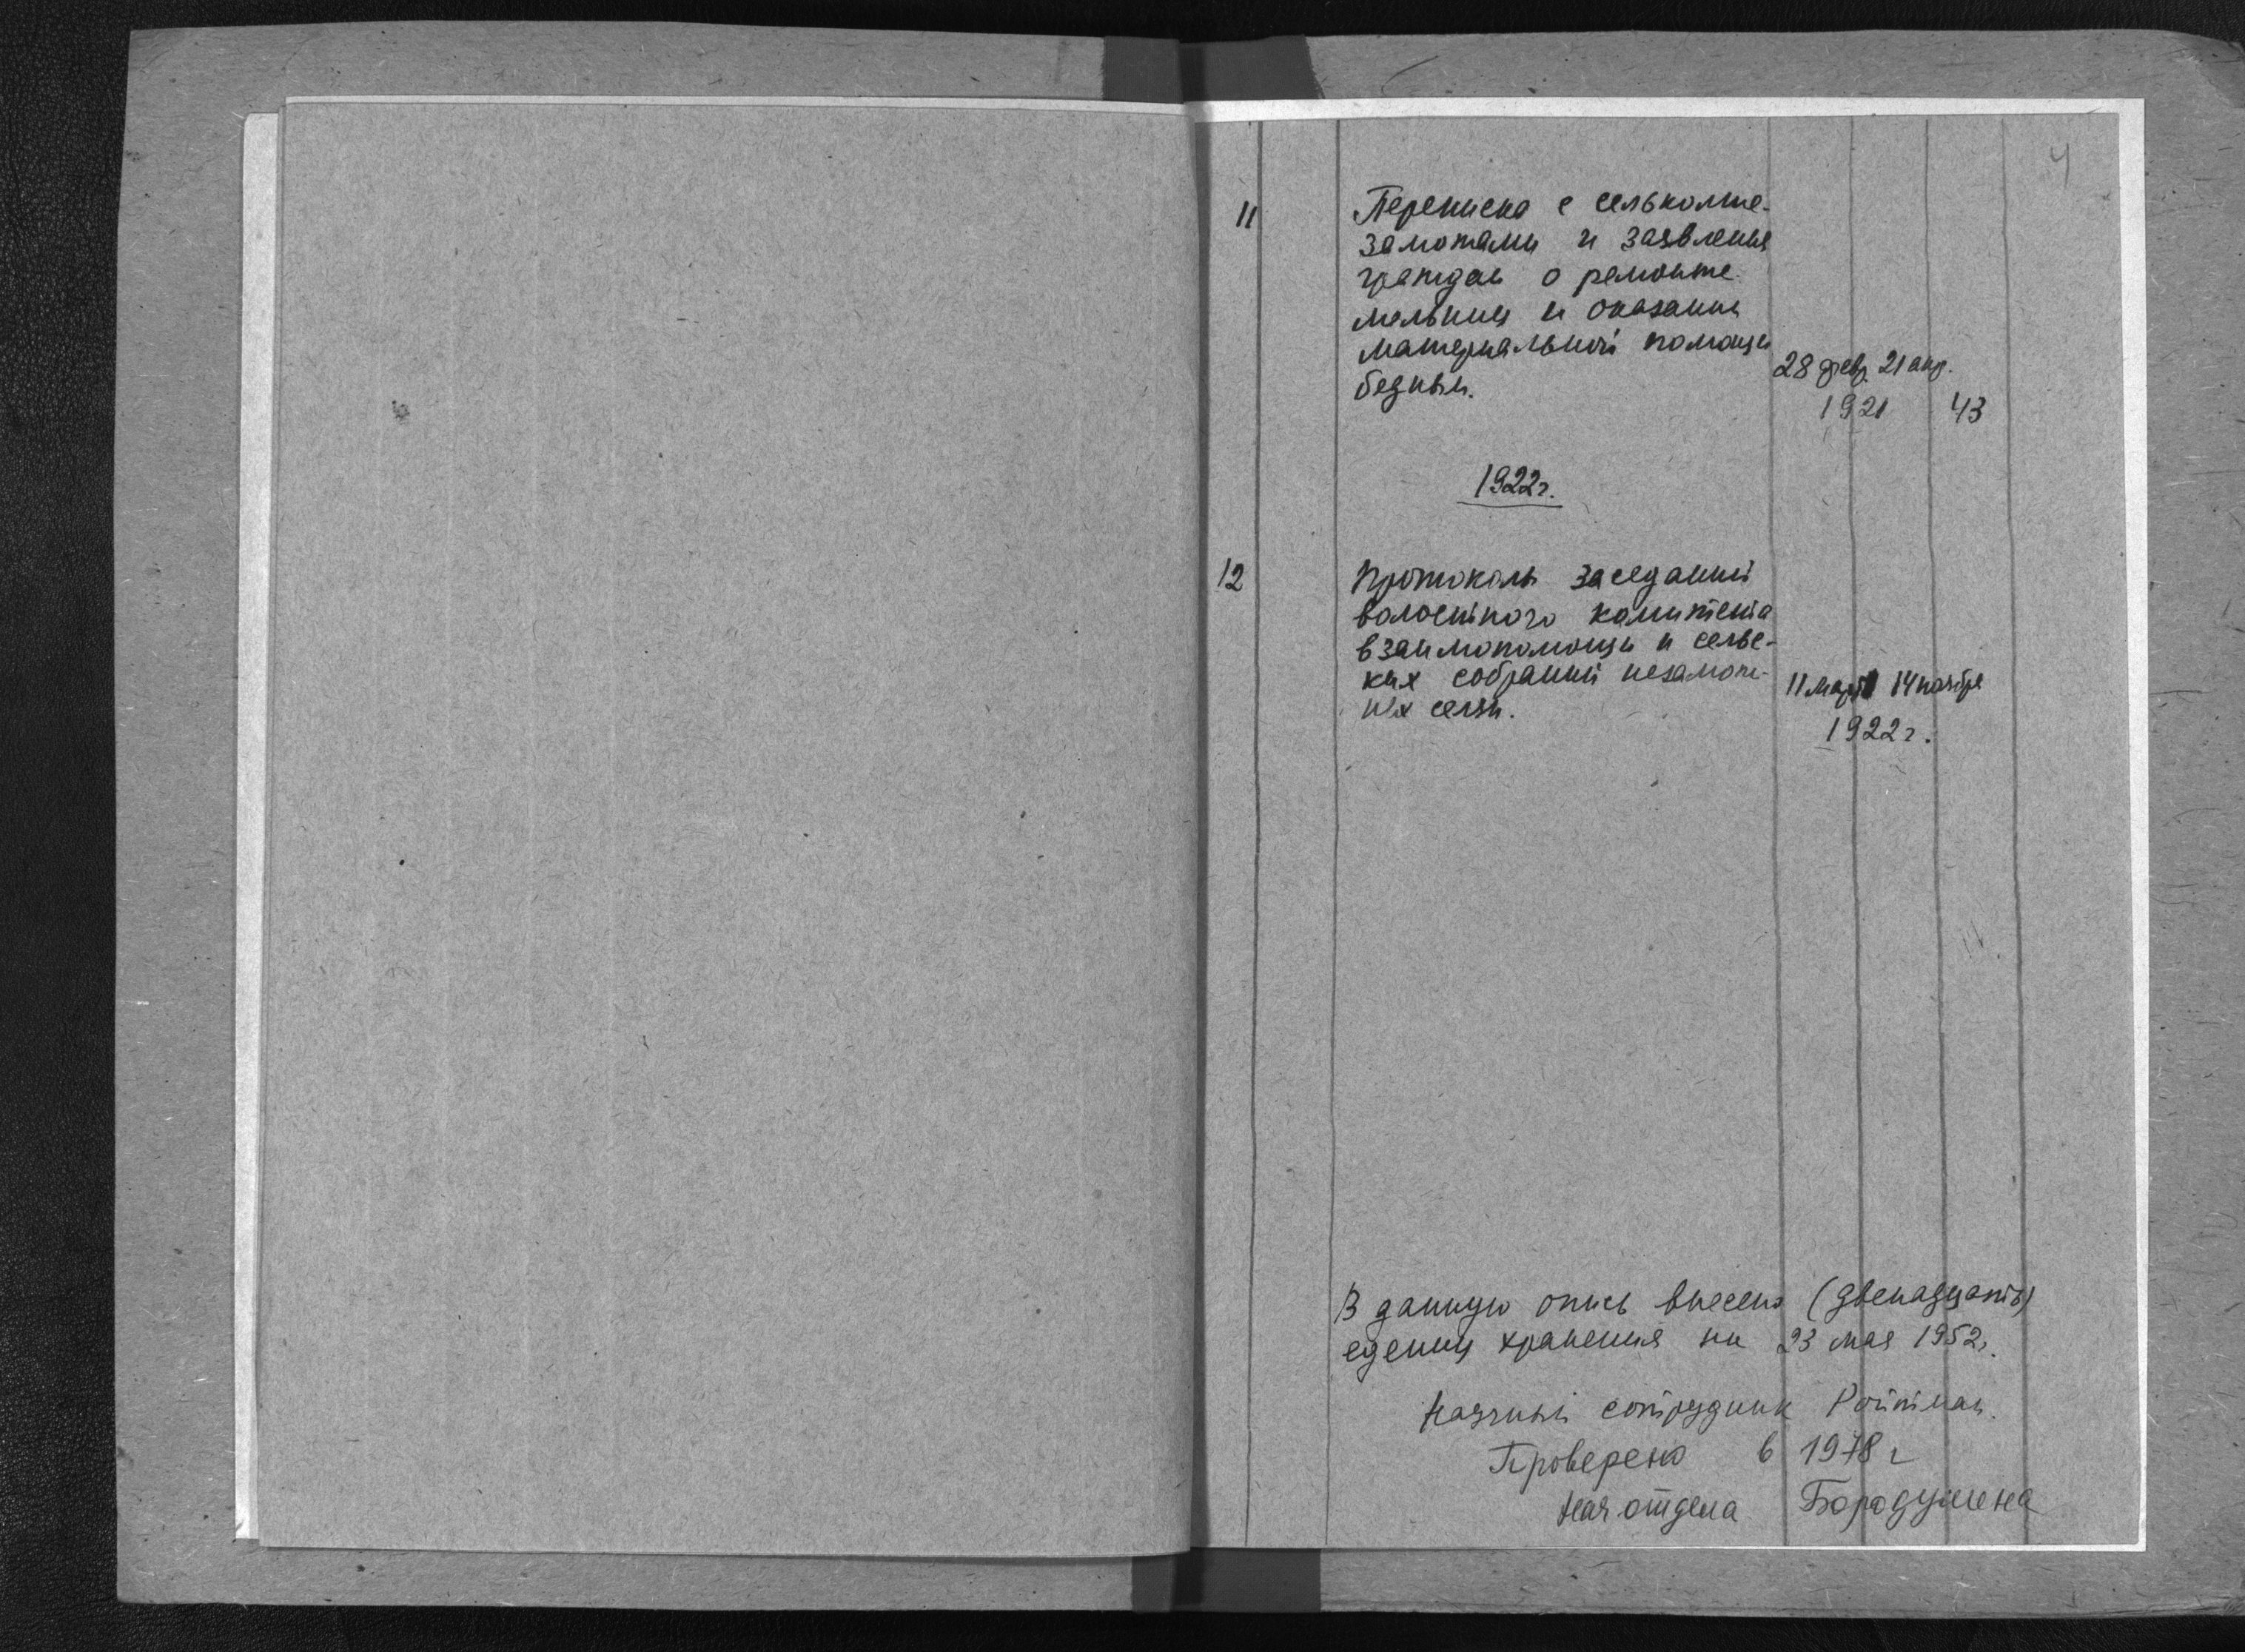 4
11
Переписка с сельколне-
заможами и заявления
граждан о ремонте
мельниц и оказании
материальной помощи
бедным.
28 февр. 21 апр.
1921 43
1922г.
12
Протоколы заседаний
волостного комитета
взаимопомощи и сельс-
ких собраний незамож-
них селян.
11 март 14 ноября
1922г.
В данную опись внесено (двенадцать)
единиц хранения на 23 мая 1952г.
Научный сотрудник Ройтман.
Проверено в 1978 г
Нач отдела